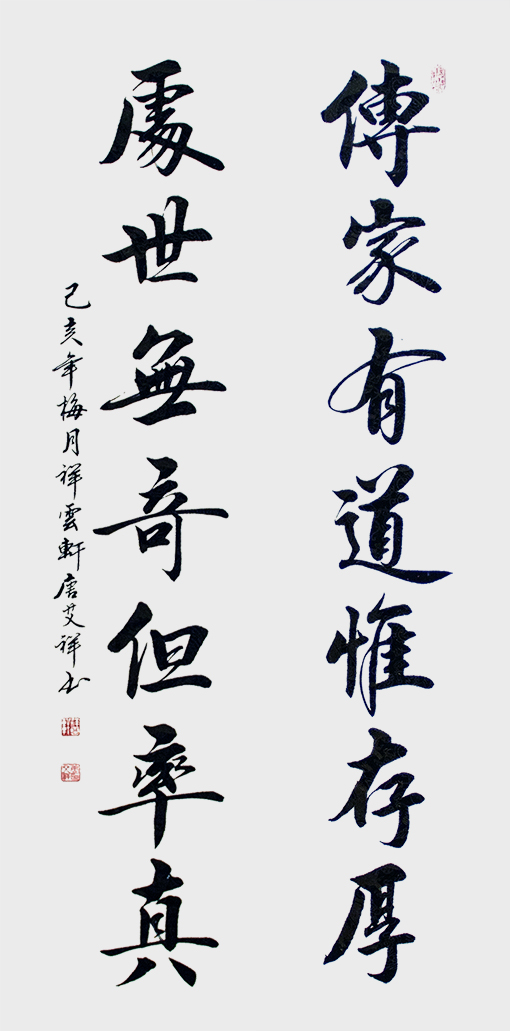 傳家有道惟存厚
處世無奇但率真
己亥年梅月祥雲軒唐艾祥书